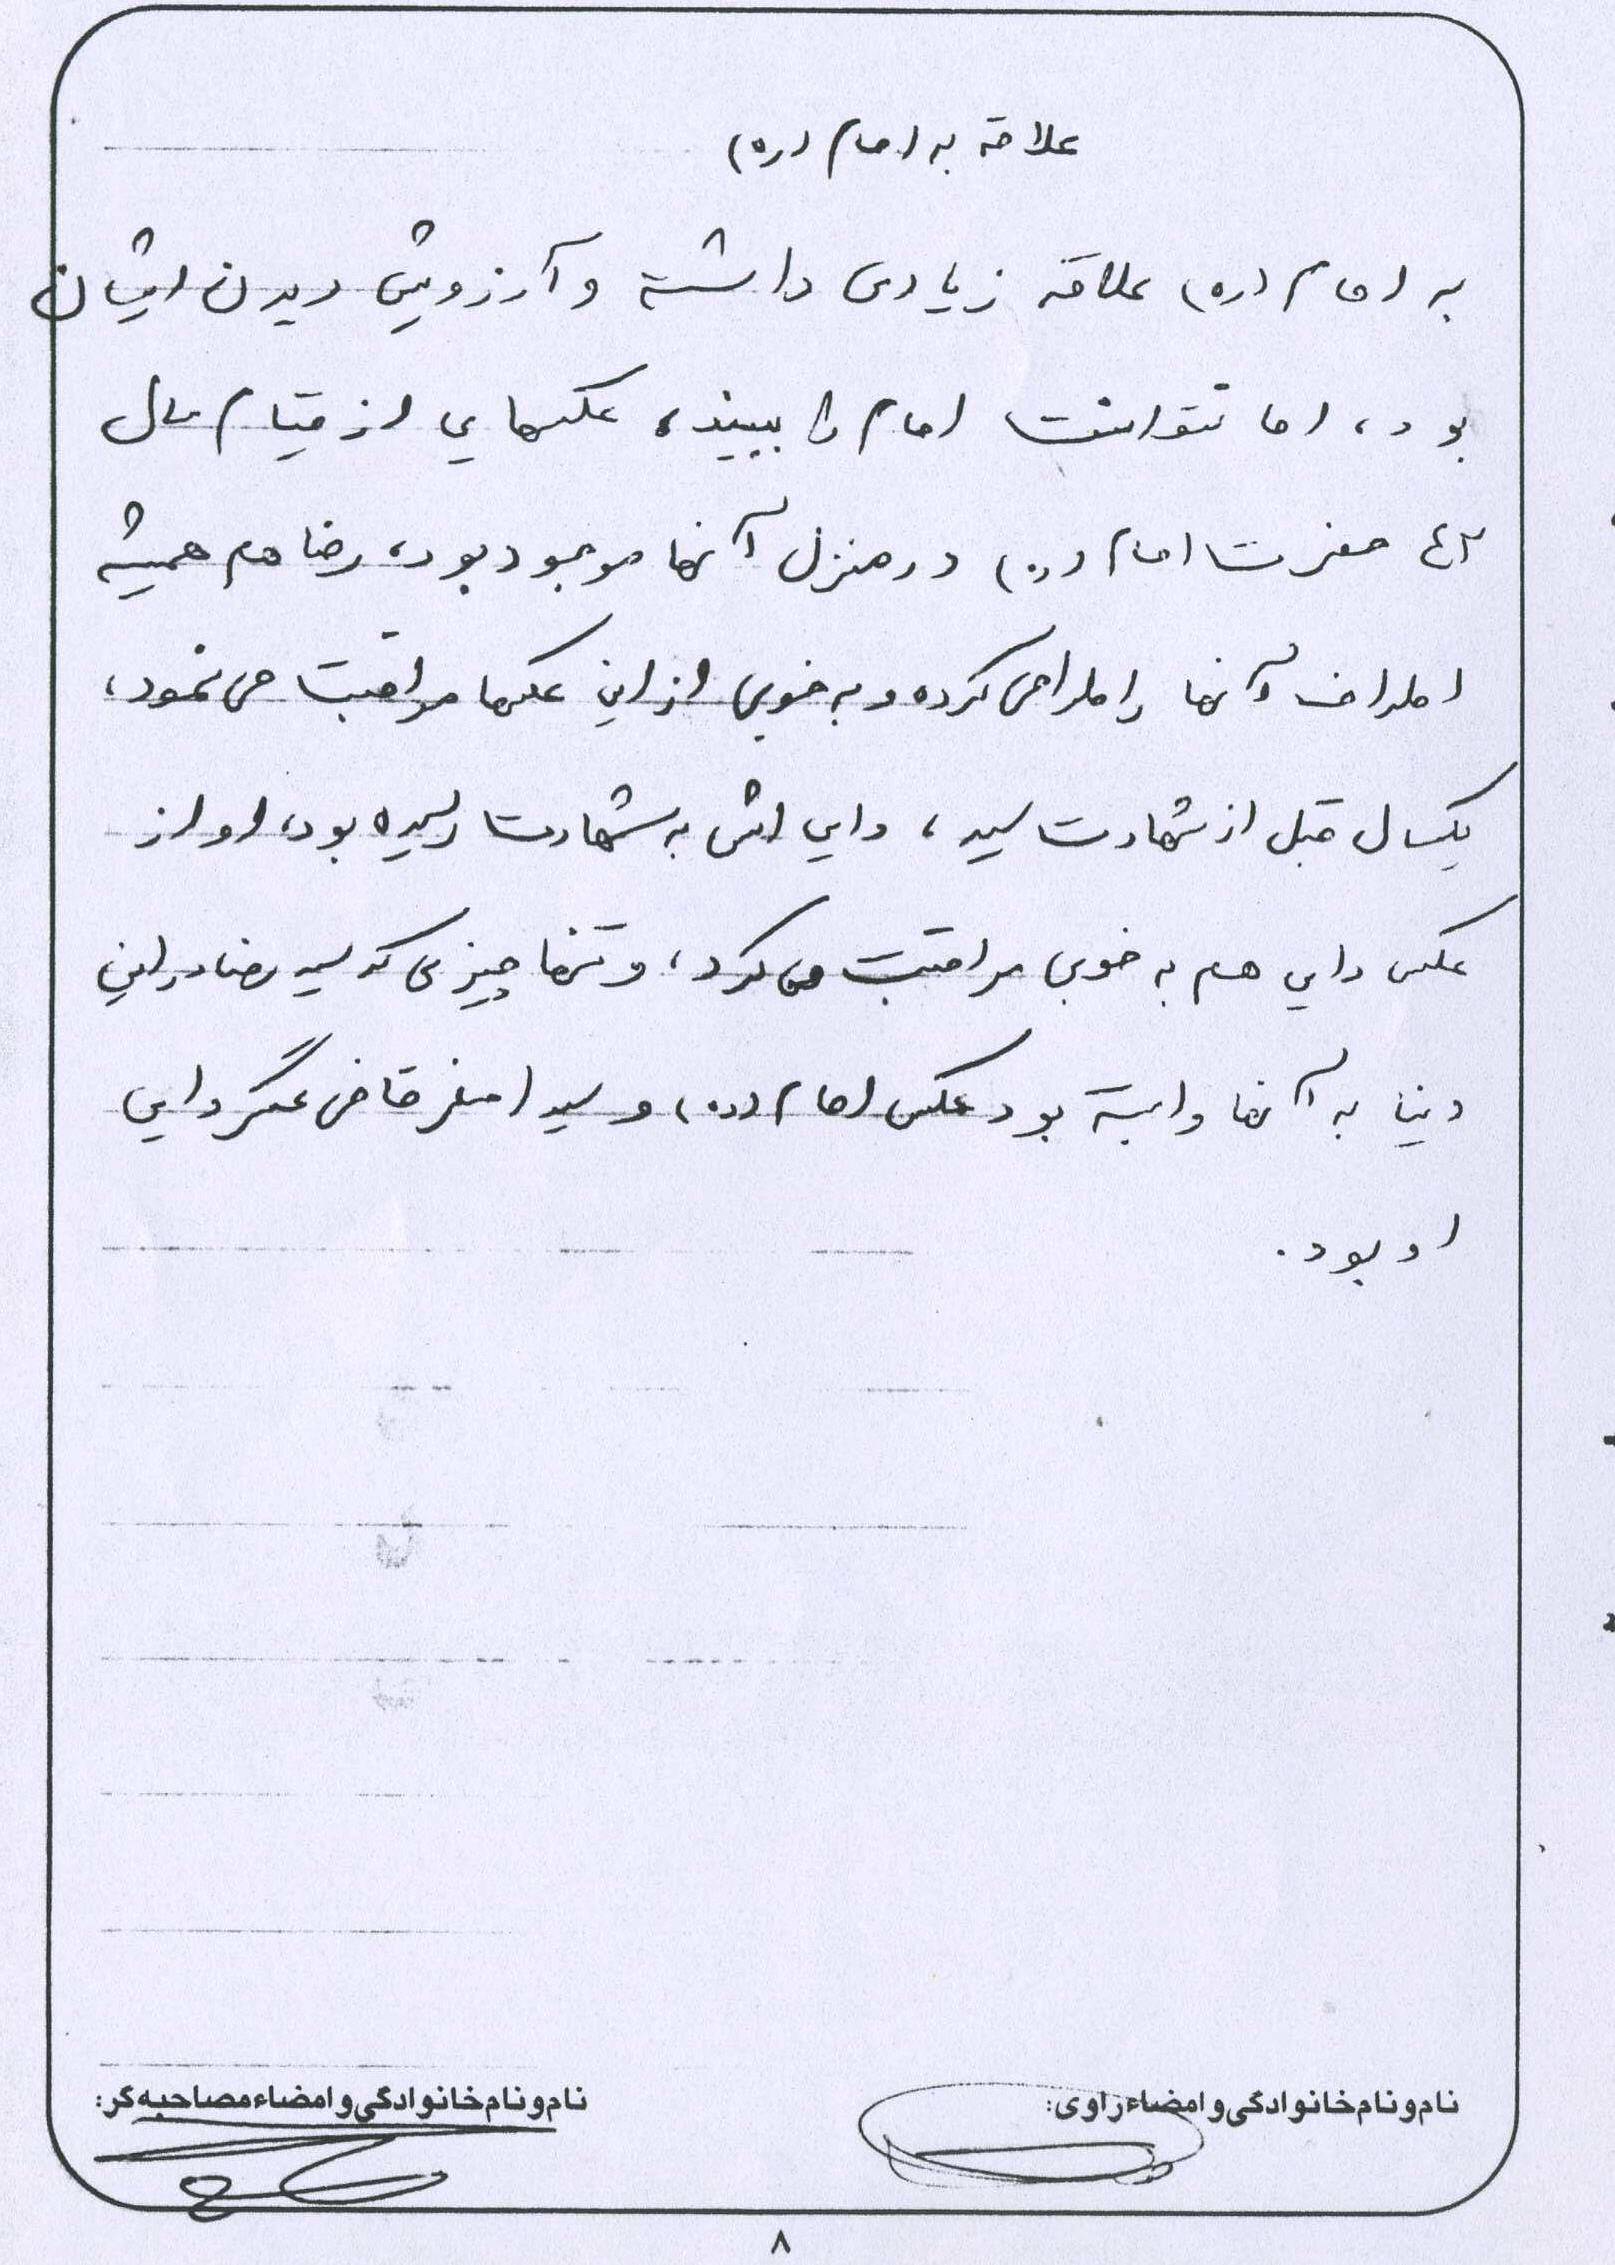 علاقه به امام (ره)
به امام (ره) علاقه زیادی داشته و آرزویش دیدن ایشان
بود، اما نتوانست امام را ببیند، عکسهایی از قیام سال
۴۲ حضرت امام (ره) در منزل آنها موجود بود، رضا هم همیشه
اطراف آنها را طراحی کرده و به خوبی از این عکسها مراقبت می نمود،
یکسال قبل از شهادت سید، دایی اش به شهادت رسیده بود، او از
عکس دایی هم به خوبی مراقبت می کرد، و تنها چیزی که سید رضا در این
دنیا به آنها وابسته بود عکس امام (ره) و سید اصغر قاضی عسگر دایی
او بود.
نام و نام خانوادگی و امضاء راوی:
نام و نام خانوادگی و امضاء مصاحبه گر:
۸